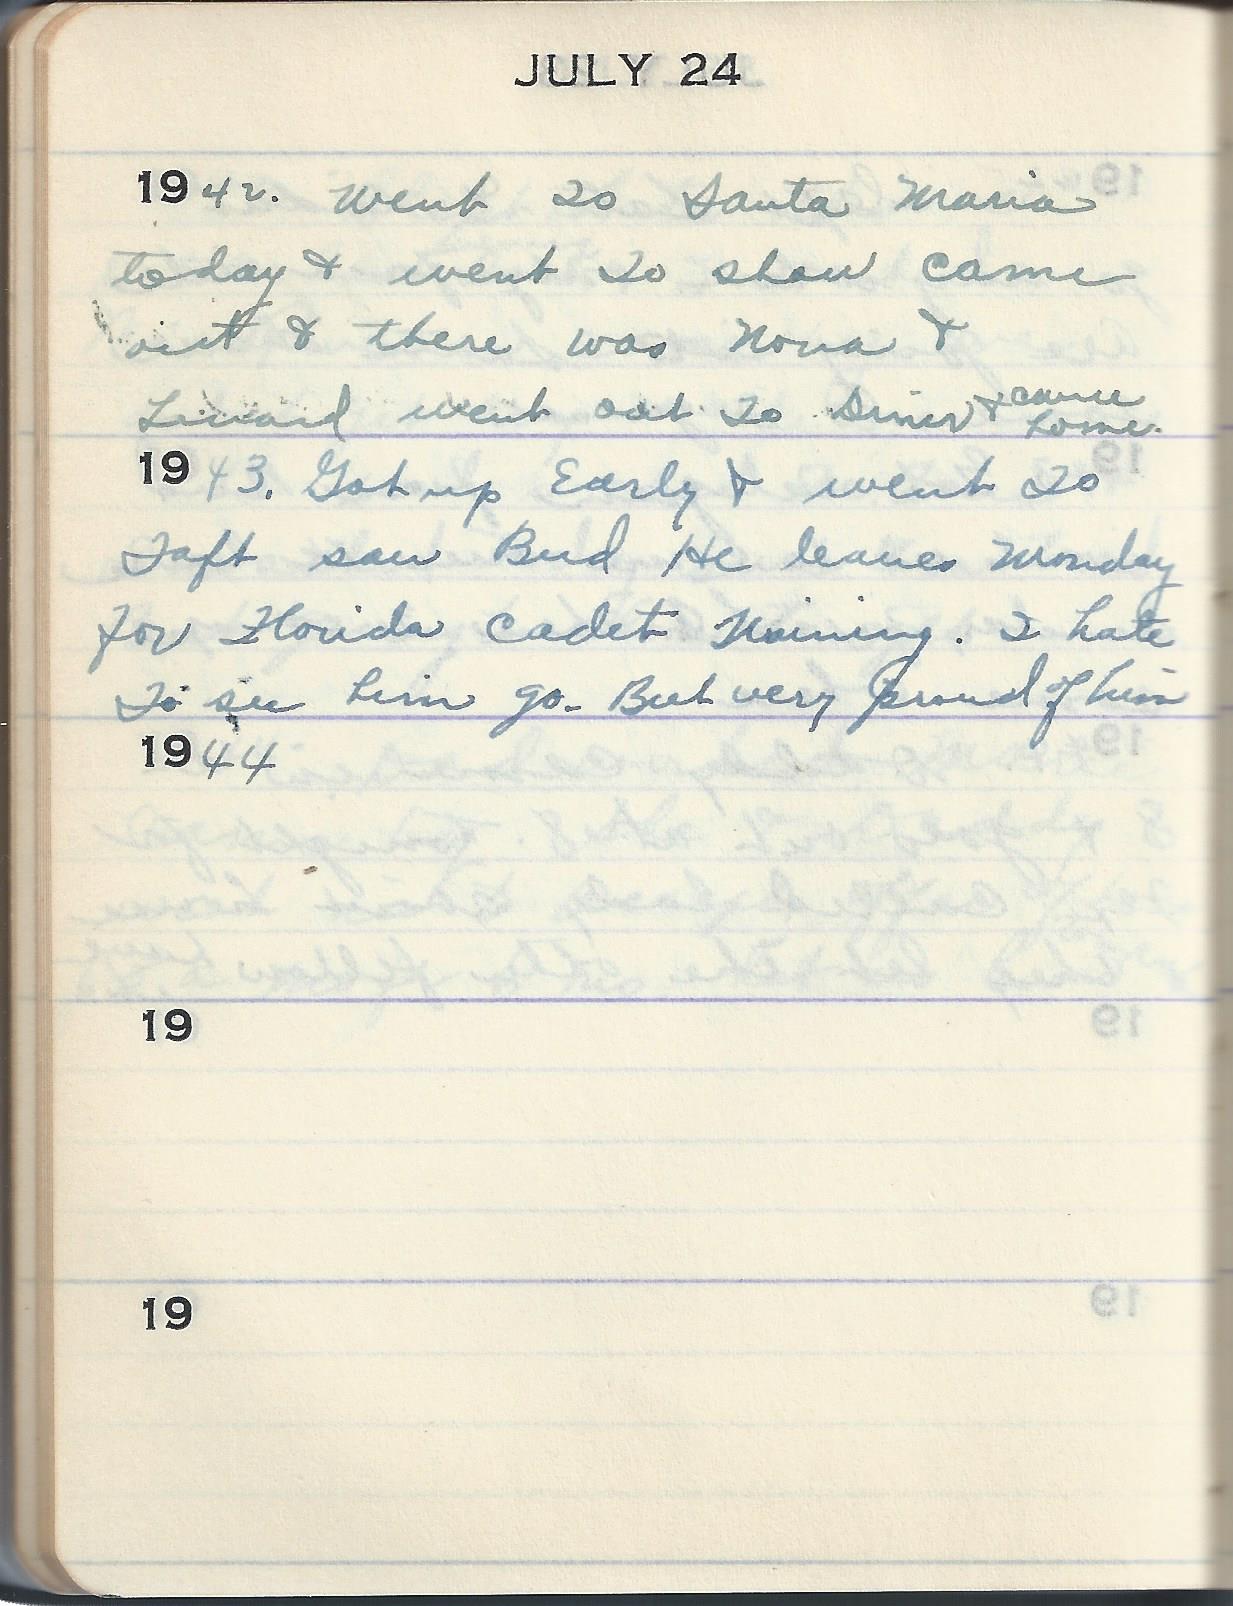 JULY 24
1942. Went to Santa Maria
today & went to show came
out & there was Nona &
went out to Diner & came home.
1943. Got up Early & went to
Taft saw Bud He leaves Monday
for Florida Cadet Training. I hate
to see him go. But very proud of him
1944
19
19